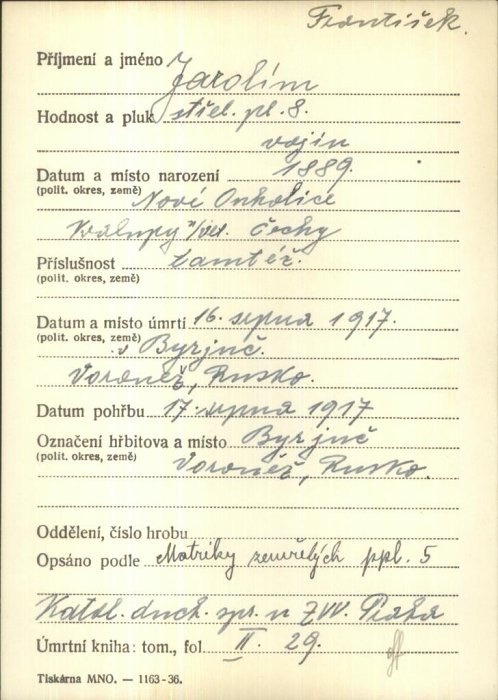 František.
Příjmení a jméno Jarolím
Hodnost a pluk střel. pl. 8.
vojín
Datum a místo narození 1889.
(polit. okres, země) Nové Ouholice
Kralupy n/vlt. Čechy
Příslušnost tamtéž.
(polit. okres, země)
Datum a místo úmrtí 16. srpna 1917.
(polit. okres, země) v Byrjuč.
Voroněž, Rusko.
Datum pohřbu 17. srpna 1917
Označení hřbitova a místo Byrjuč
(polit. okres, země) Voroněž, Rusko.
Oddělení, číslo hrobu
Opsáno podle Matriky zemřelých ppl. 5
Katol. duch. spr. u ZVV. Praha
Úmrtní kniha: tom., fol. II. 29.
Tiskárna MNO. — 1163-36.